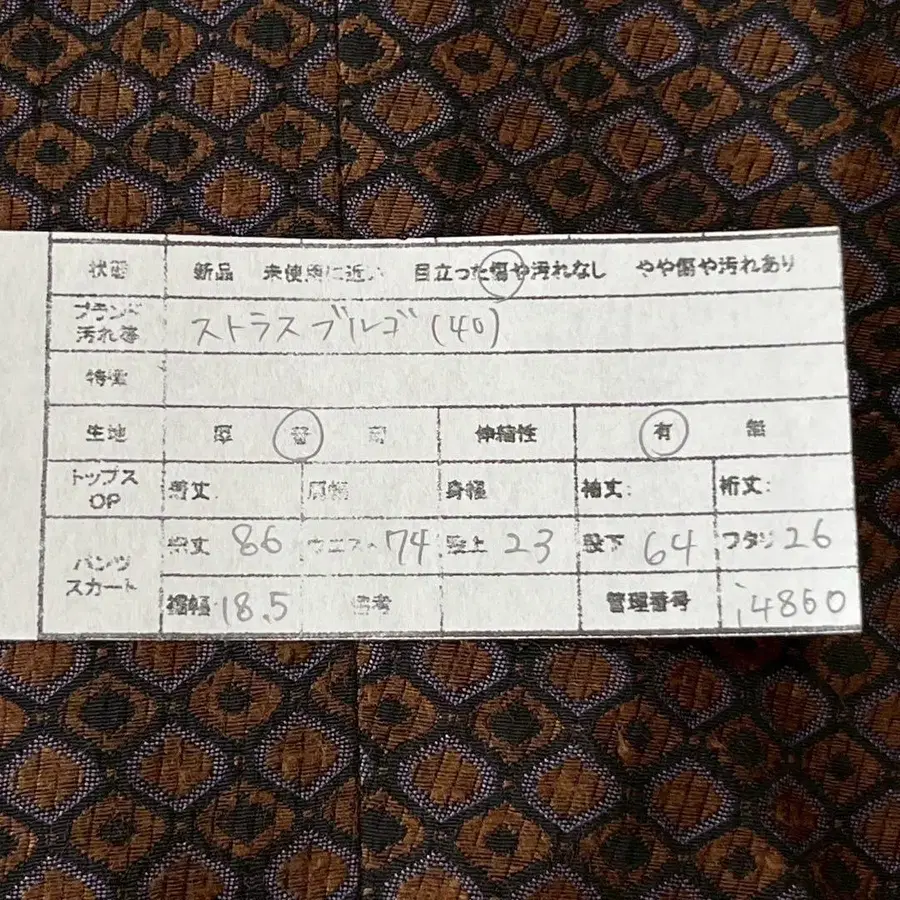 状態 新品 未使用に近い 目立った傷や汚れなし やや傷や汚れあり
ブランド 汚れ等 ストラスブルゴ(40)
特徴
生地 厚 普 薄 伸縮性 有 無
トップス OP 着丈: 肩幅 身幅 袖丈: 裄丈:
パンツ スカート 総丈 86 ウエスト 74 股上 23 股下 64 ワタリ 26
裾幅 18.5 備考 管理番号 i4860